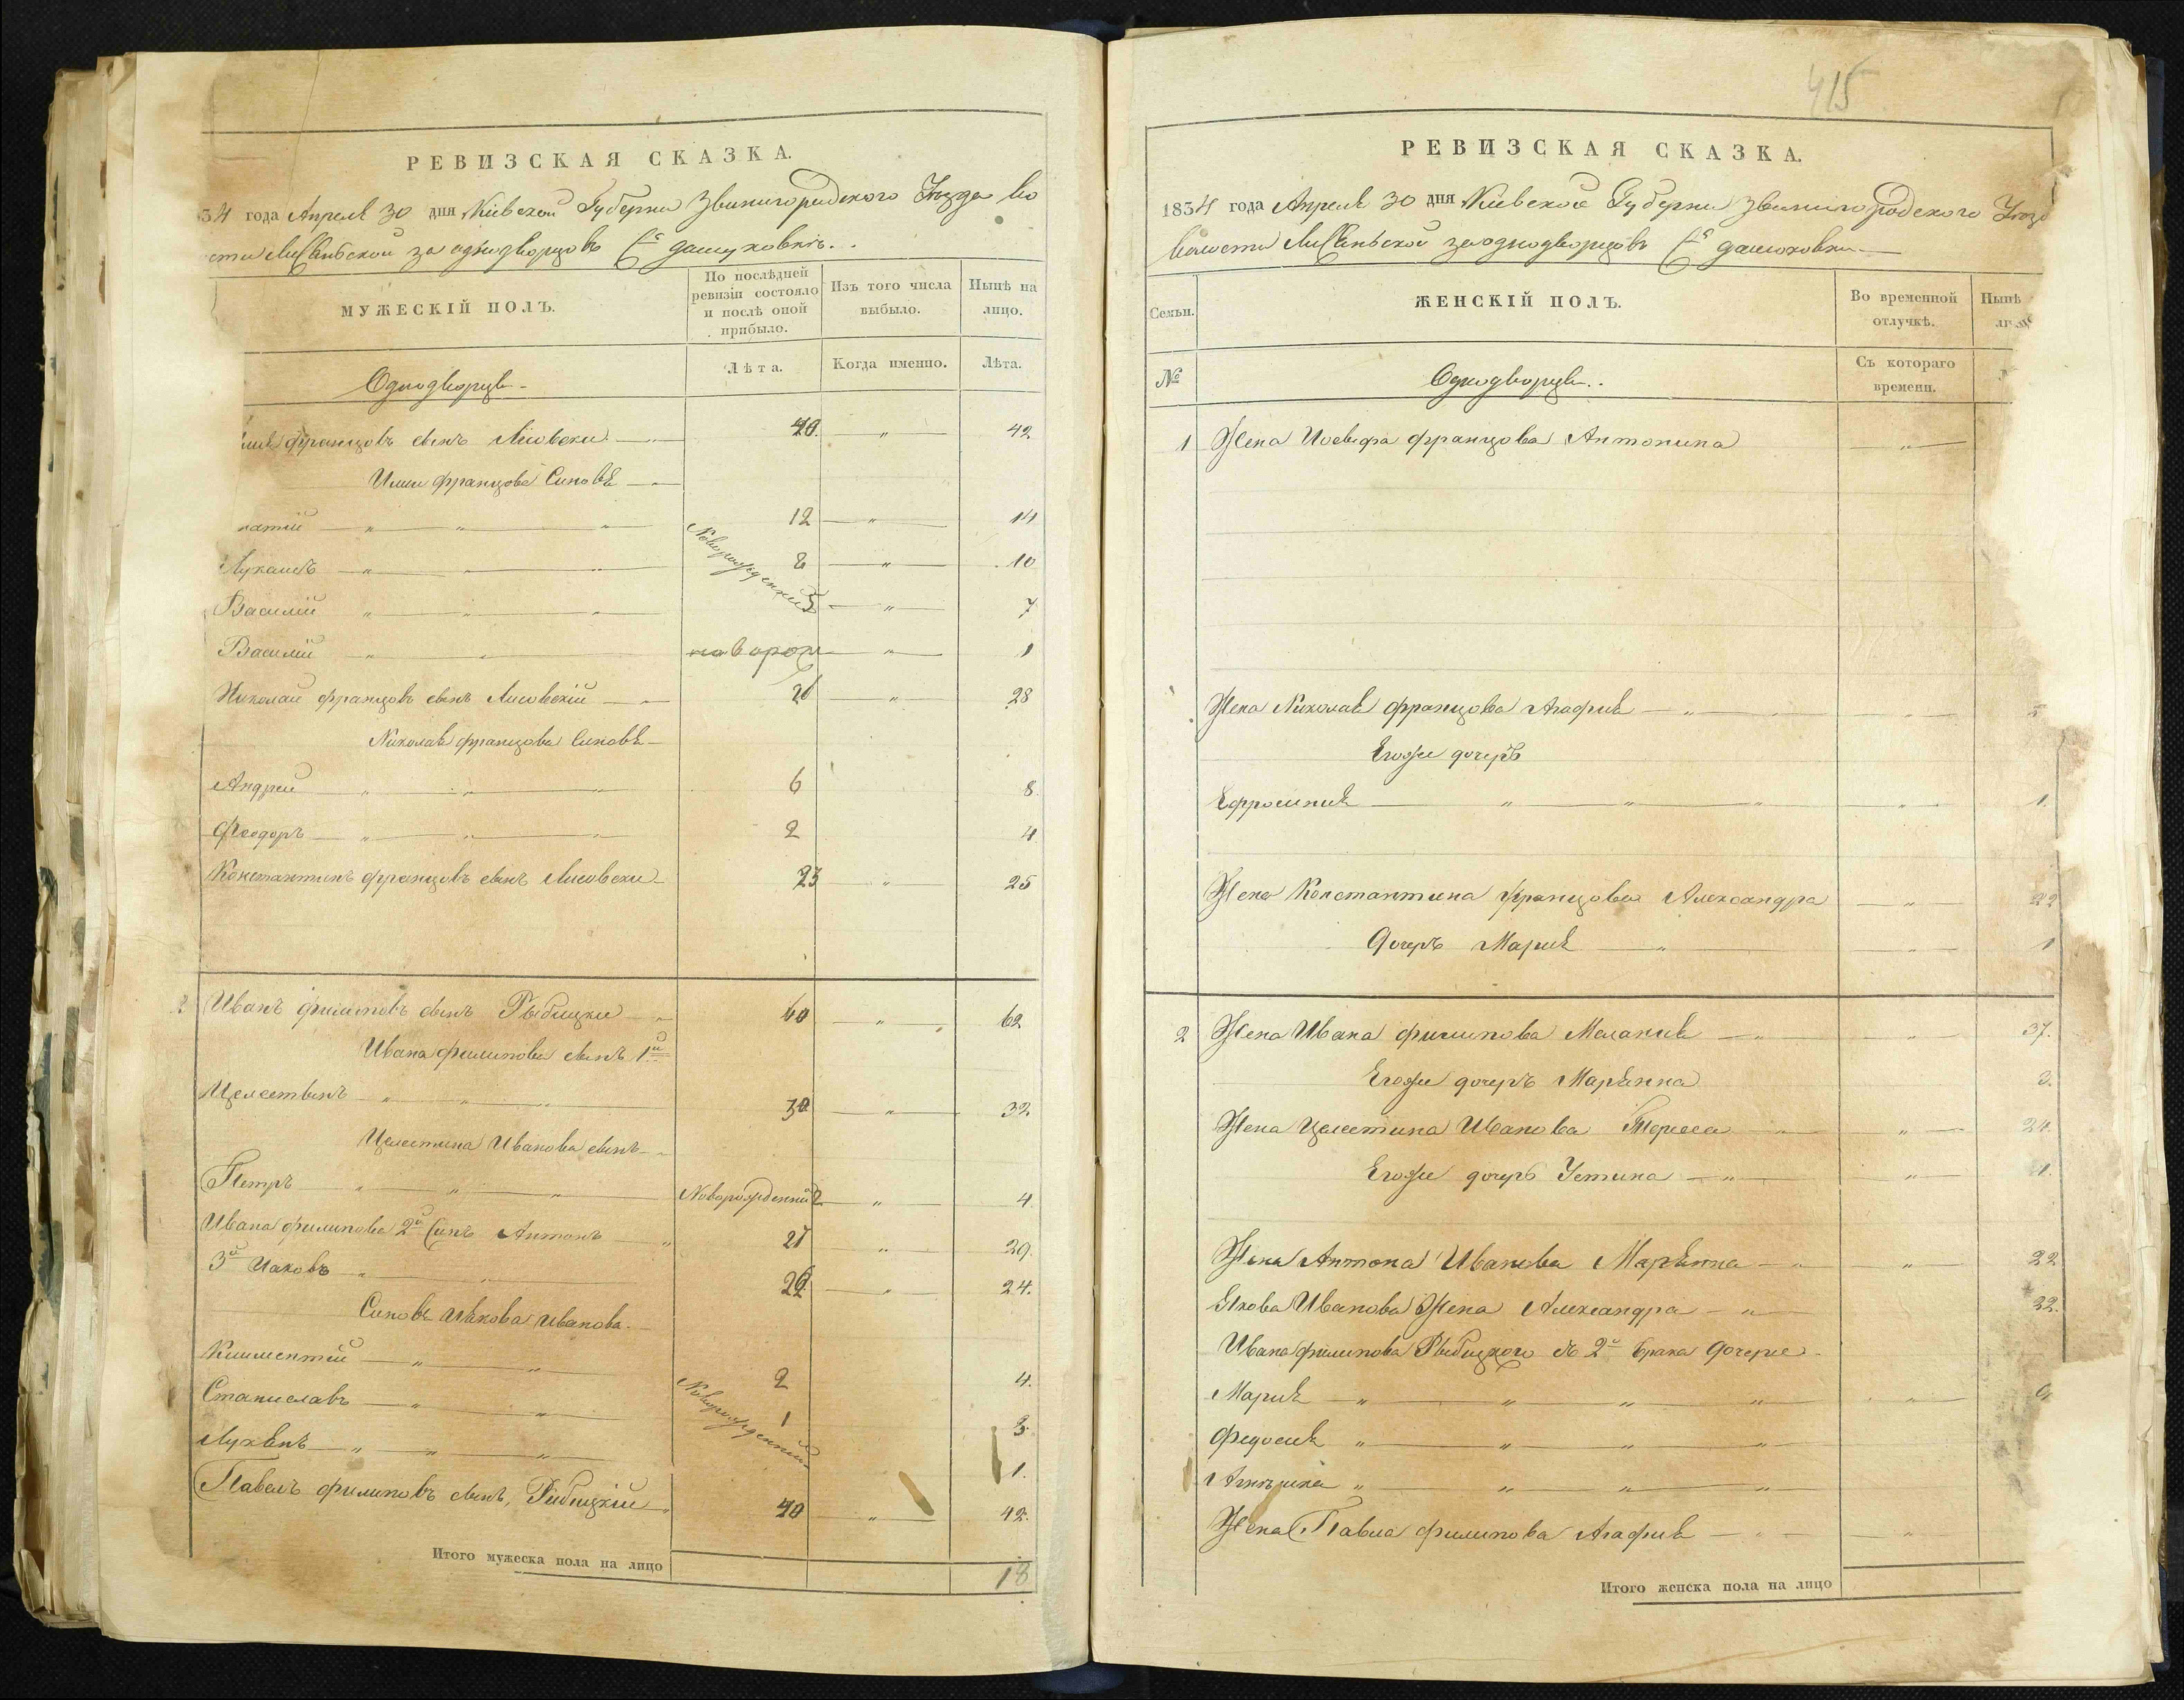 РЕВИЗСКАЯ СКАЗКА.
34 года Апреля 30 дня Киевской Губернии Звинигородского Уезда во
сти Лисянской за однодворцовъ Сͤ дашуховкіе..
МУЖЕСКІЙ ПОЛЪ.
По послѣдней ревизіи состояло и послѣ оной прибыло.
Изъ того числа выбыло.
Нынѣ на лицо.
Однодворцы
Лѣта.
Когда именно.
Лѣта.
францовъ сынъ Лисовски 40. " 42
Илии францова Синовѣ
натій " " " 12 " 14
Новорожденній
Лукашъ " " 8 " 10
Василій " " " 5 " 7
Василій " " новорож " 1
Николай францовъ сынъ Лисовскій 26 " 28
Николая францова Синовѣ
Андрей " " " 6 8
Феодоръ " " " 2 4
Константинъ францовъ сынъ Лисовски 23 " 25
2 Иванъ филиповъ сынъ Рыбицки 60 " 62
Ивана филипова сынъ 1й
Целестинъ " " " 30 " 32
Целестина Иванова сынъ
Петръ " " " Новорожденній 2 " 4
Ивана филипова 2й Синъ Антонъ " 27 " 29.
3й Иаковъ " " 22 " 24.
Синовѣ Иякова Иванова.
Климентій " " 2 4.
Новорожденній
Станиславъ " " 1 3
Лукянъ " " " 1.
Павелъ филиповъ сынъ, Рибицкій " 40 " 42.
Итого мужеска пола на лицо 18
415
РЕВИЗСКАЯ СКАЗКА.
1834 года Апреля 30 дня Киевской Губернии Звинигородского Уезд
Волости Лисянской за однодворцовъ Сͤ дашоховки
Семьи.
ЖЕНСКІЙ ПОЛЪ.
Во временной отлучкѣ.
Нынѣ
№
Однодворцы..
Съ котораго времени.
1 Жена Иосифа францова Антонина "
Жена Николая францова Агафия " "
Егоже дочеръ
Ефросиния " " " " 1.
Жена Константина францова Александра " 22
Дочеръ Мария " " 1
2 Жена Ивана филипова Мелания " " 37.
Егоже дочеръ Марянна 3.
Жена Целестина Иванова Тереса " " 24.
Егоже дочеръ Устина " " 1.
Жена Антона Иванова Марянна " " 22
Якова Иванова Жена Александра " 22.
Ивана филипова Рыбицкого съ 2й брака дочерие
Мария " " " " "
Федосия " " " "
" " " "
Жена Павла филипова Агафия " "
Итого женска пола на лицо